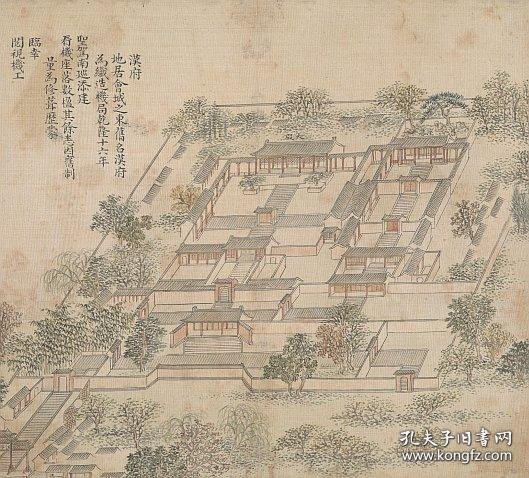 漢府
地居會城之東舊名漢府
為織造機局乾隆十六年
聖駕南巡添建
看機座落數區其餘悉因舊制
量為修葺歷蒙
臨幸
閱視機工
大殿
孔夫子旧书网